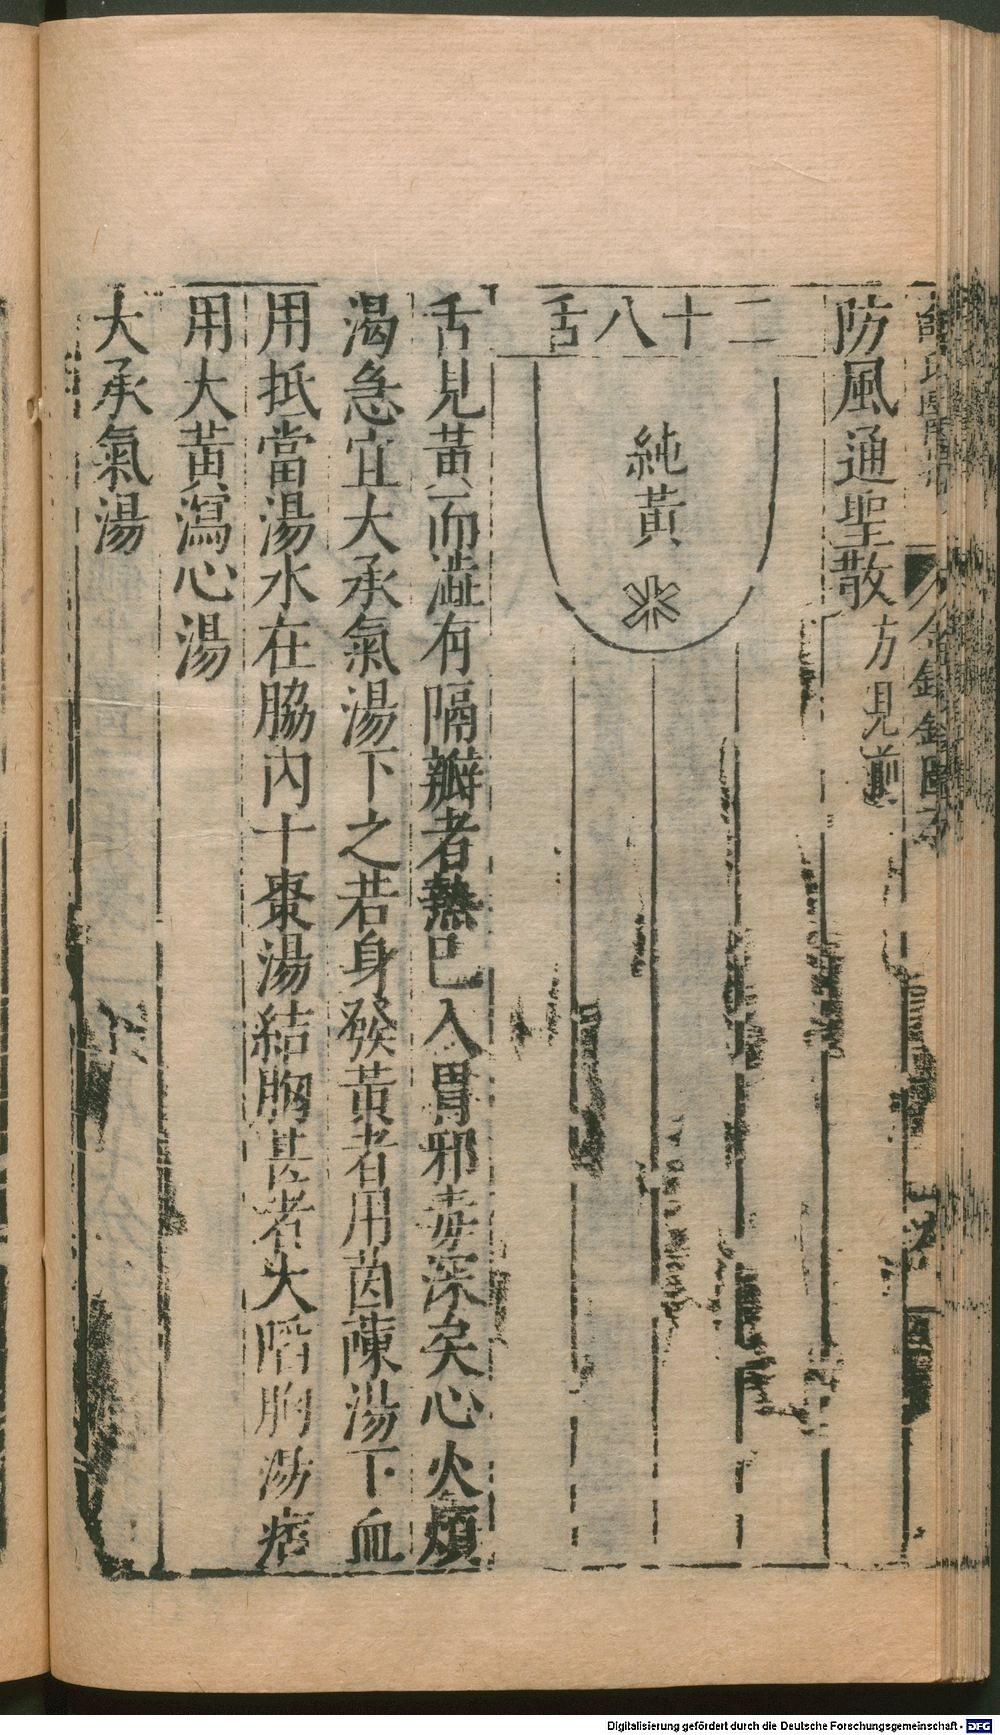 薛氏醫按 金鏡錄圖
防風通聖散方見前
二十八舌
純黃
舌見黃而澁有隔瓣者熱已入胃邪毒深矣心火煩
渴急宜大承氣湯下之若身發黃者用茵蔯湯下血
用抵當湯水在脇內十棗湯結胸甚者大陷胸湯痞
用大黃瀉心湯
大承氣湯
Digitalisierung gefördert durch die Deutsche Forschungsgemeinschaft - DFG